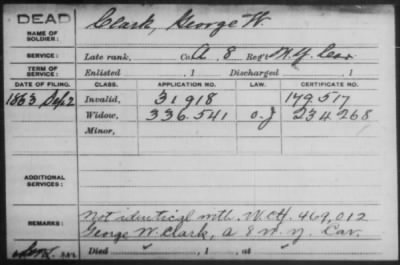 DEAD
NAME OF SOLDIER: Clark, George W.
SERVICE: Late rank, Co. A, 8 Reg't N.Y. Cav
TERM OF SERVICE: Enlisted , 1 Discharged , 1
DATE OF FILING. CLASS. APPLICATION NO. LAW. CERTIFICATE NO.
1863 Sep 2 Invalid, 31918 149.517
Widow, 336.541 234268
Minor,
ADDITIONAL SERVICES:
REMARKS: Not identical with W.C. 469,012
George W. Clark, A 8 N.Y. Cav.
Died , 1 , at